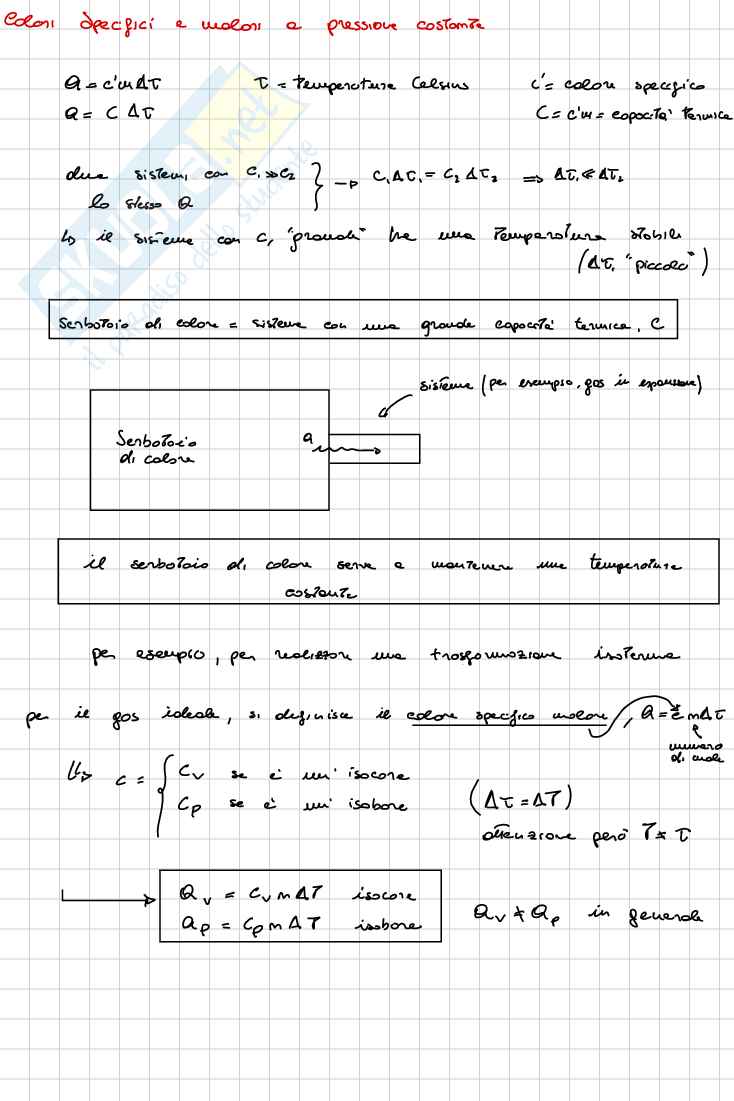 Calori specifici e molari a pressione costante
Q = c'm Δτ τ = temperatura Celsius c' = calore specifico
Q = C Δτ C = c'm = capacità termica
due sistemi con C₁ ≫ C₂ } → C₁Δτ₁ = C₂Δτ₂ ⇒ Δτ₁ ≪ Δτ₂
lo stesso Q
↳ il sistema con C₁ "grande" ha una temperatura stabile
(Δτ₁ "piccolo")
Serbatoio di calore = sistema con una grande capacità termica, C
sistema (per esempio, gas in espansione)
Serbatoio
di calore
Q
il serbatoio di calore serve a mantenere una temperatura
costante
per esempio, per realizzare una trasformazione isoterma
per il gas ideale, si definisce il calore specifico molare, Q = c n Δτ
numero
di mole
↳ c = { c_V se è un' isocora
c_P se è un' isobara
(Δτ = ΔT)
attenzione però T ≠ τ
Q_V = c_V n ΔT isocora
Q_P = c_P n ΔT isobara
Q_V ≠ Q_P in generale
SKUOLA.net
il paradiso dello studente